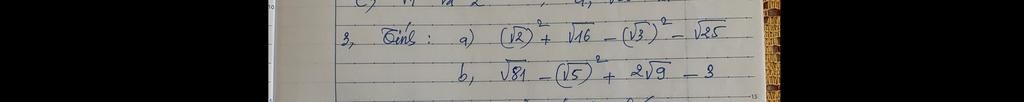 3, Tính : a) (√2)² + √16 - (√3)² - √25
b, √81 - (√5)² + 2√9 - 3